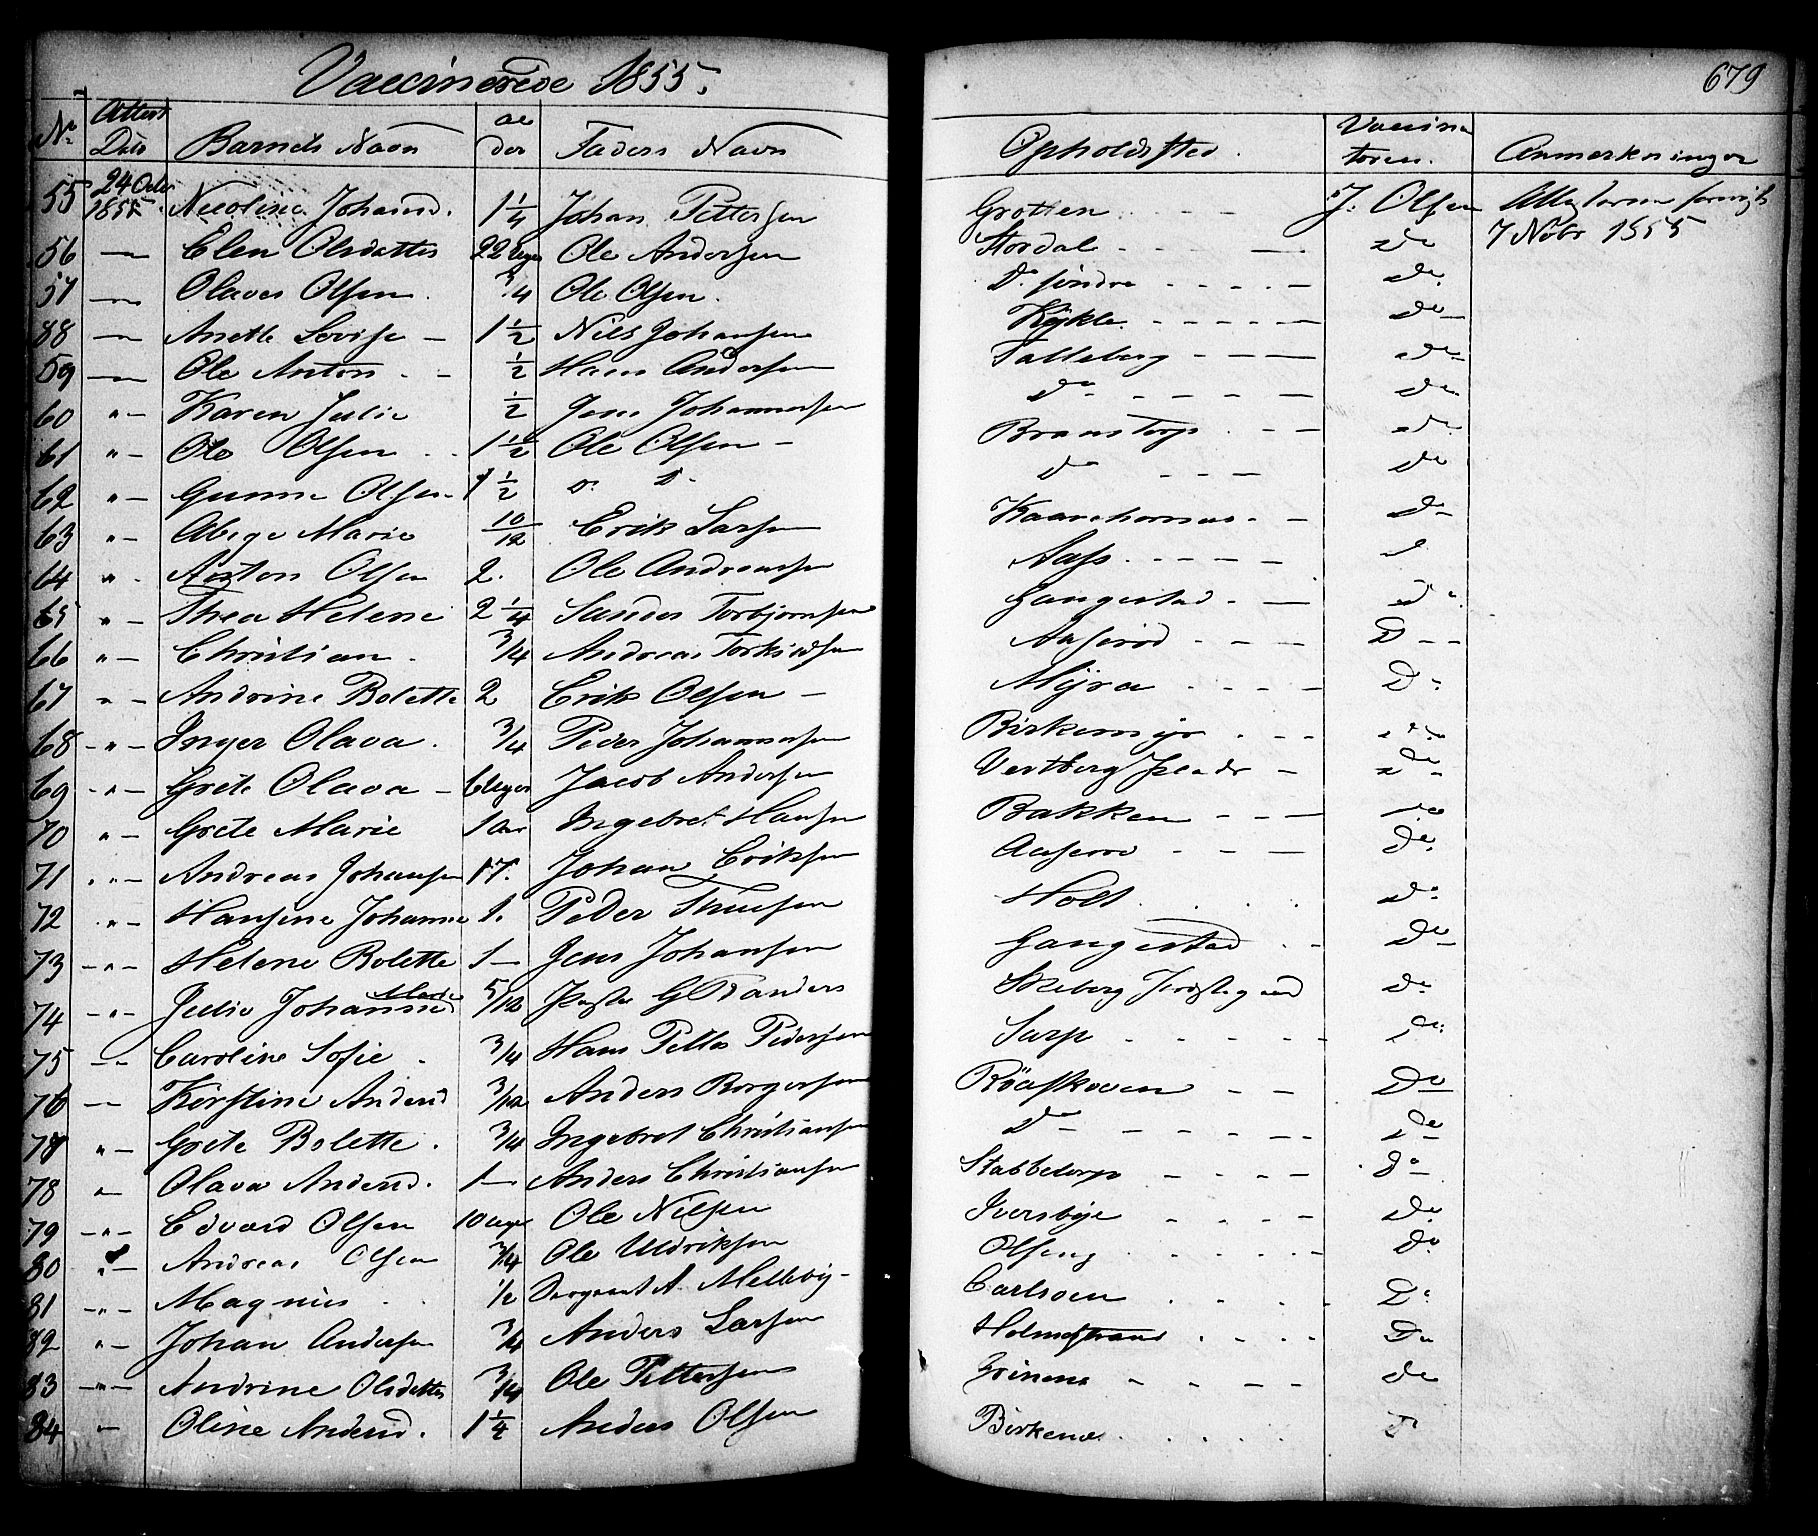 Vaccinerede 1855.
679
No Attest Dato Barnets Navn Alder Faders Navn Opholdssted. Vaccinatoren. Anmerkninger
55 24 Octbr 1855 Nicoline Johansd. 1 1/4 Johan Pettersen Grotten J. Olsen Attesterne
56 — Elen Olsdatter 22 Uger Ole Andersen Stordal Do 7 Nobr 1855
57 — Olaves Olsen. 3/4 Ole Olsen. Do søndre Do
88 — Anette Lovise — 1 1/2 Nils Johansen Kykle Do
59 — Ole Anton 1/2 Hans Andersen Talleberg Do
60 " — Karen Julie 1/2 Jens Johannesen Do Do
61 " — Ole Olsen 1 1/2 Ole Olsen — Branstorp Do
62 " — Gunne Olsen 1 1/2 D. D. Do Do
63 " — Marie 10/12 Erik Larsen Do
64 " Anton Olsen 2. Ole Andreassen Aass
65 " — Thea Helene 2 1/4 Sander Torbjørnsen Gangestad Do
66 " — Christian. 3/4 Andreas Torkildsen Aaserød D
67 " — Andrine Bolette 2 Erik Olsen — Myra Do
68 — " — Inger Olava. 3/4 Peder Johannesen Birkemyr "
69 — " — Grete Olava — 6 Uger Jacob Andersen Vestberg Do
70 " — Grete Marie 1 Aar Ingebret Hansen Bakken Do
71 " — Andreas Johansen 17. Johan Eriksen Aaserød Do
72 " — Hansine Johanne 1. Peder Thuesen Holt Do
73 — " — Helene Bolette 1 — Jens Johansen Gangestad Do
74 — " — Julie Johanne Marie 5/12 G Skeberg Do
75 — Caroline Sofie 3/4 Hans Petter Pedersen Sarp Do
76 — Kirstine Andersd 3/12 Anders Borgersen Do
78 " — Grete Bolette. 3/4 Ingebret Christiansen Do Do
78 " Olava Andersd. 1 — Anders Christiansen Stabbetorp Do
79 — " — Edvard Olsen 10 Uger Ole Nilsen Iversbye Do
80 " — Andreas Olsen 3/4 Ole Uldriksen Olseng Do
81 — " — Magnus 1/2 Sergeant A. Mellebÿ — Carlsoen Do
82 " — Johan Andersen 3/4 Anders Larsen Holmstrand Do
83 — " — Andrine Olsdatter 3/4 Ole Pettersen Do
84 " Oline Andersd. 1 1/4 Anders Olsen Birkene. D